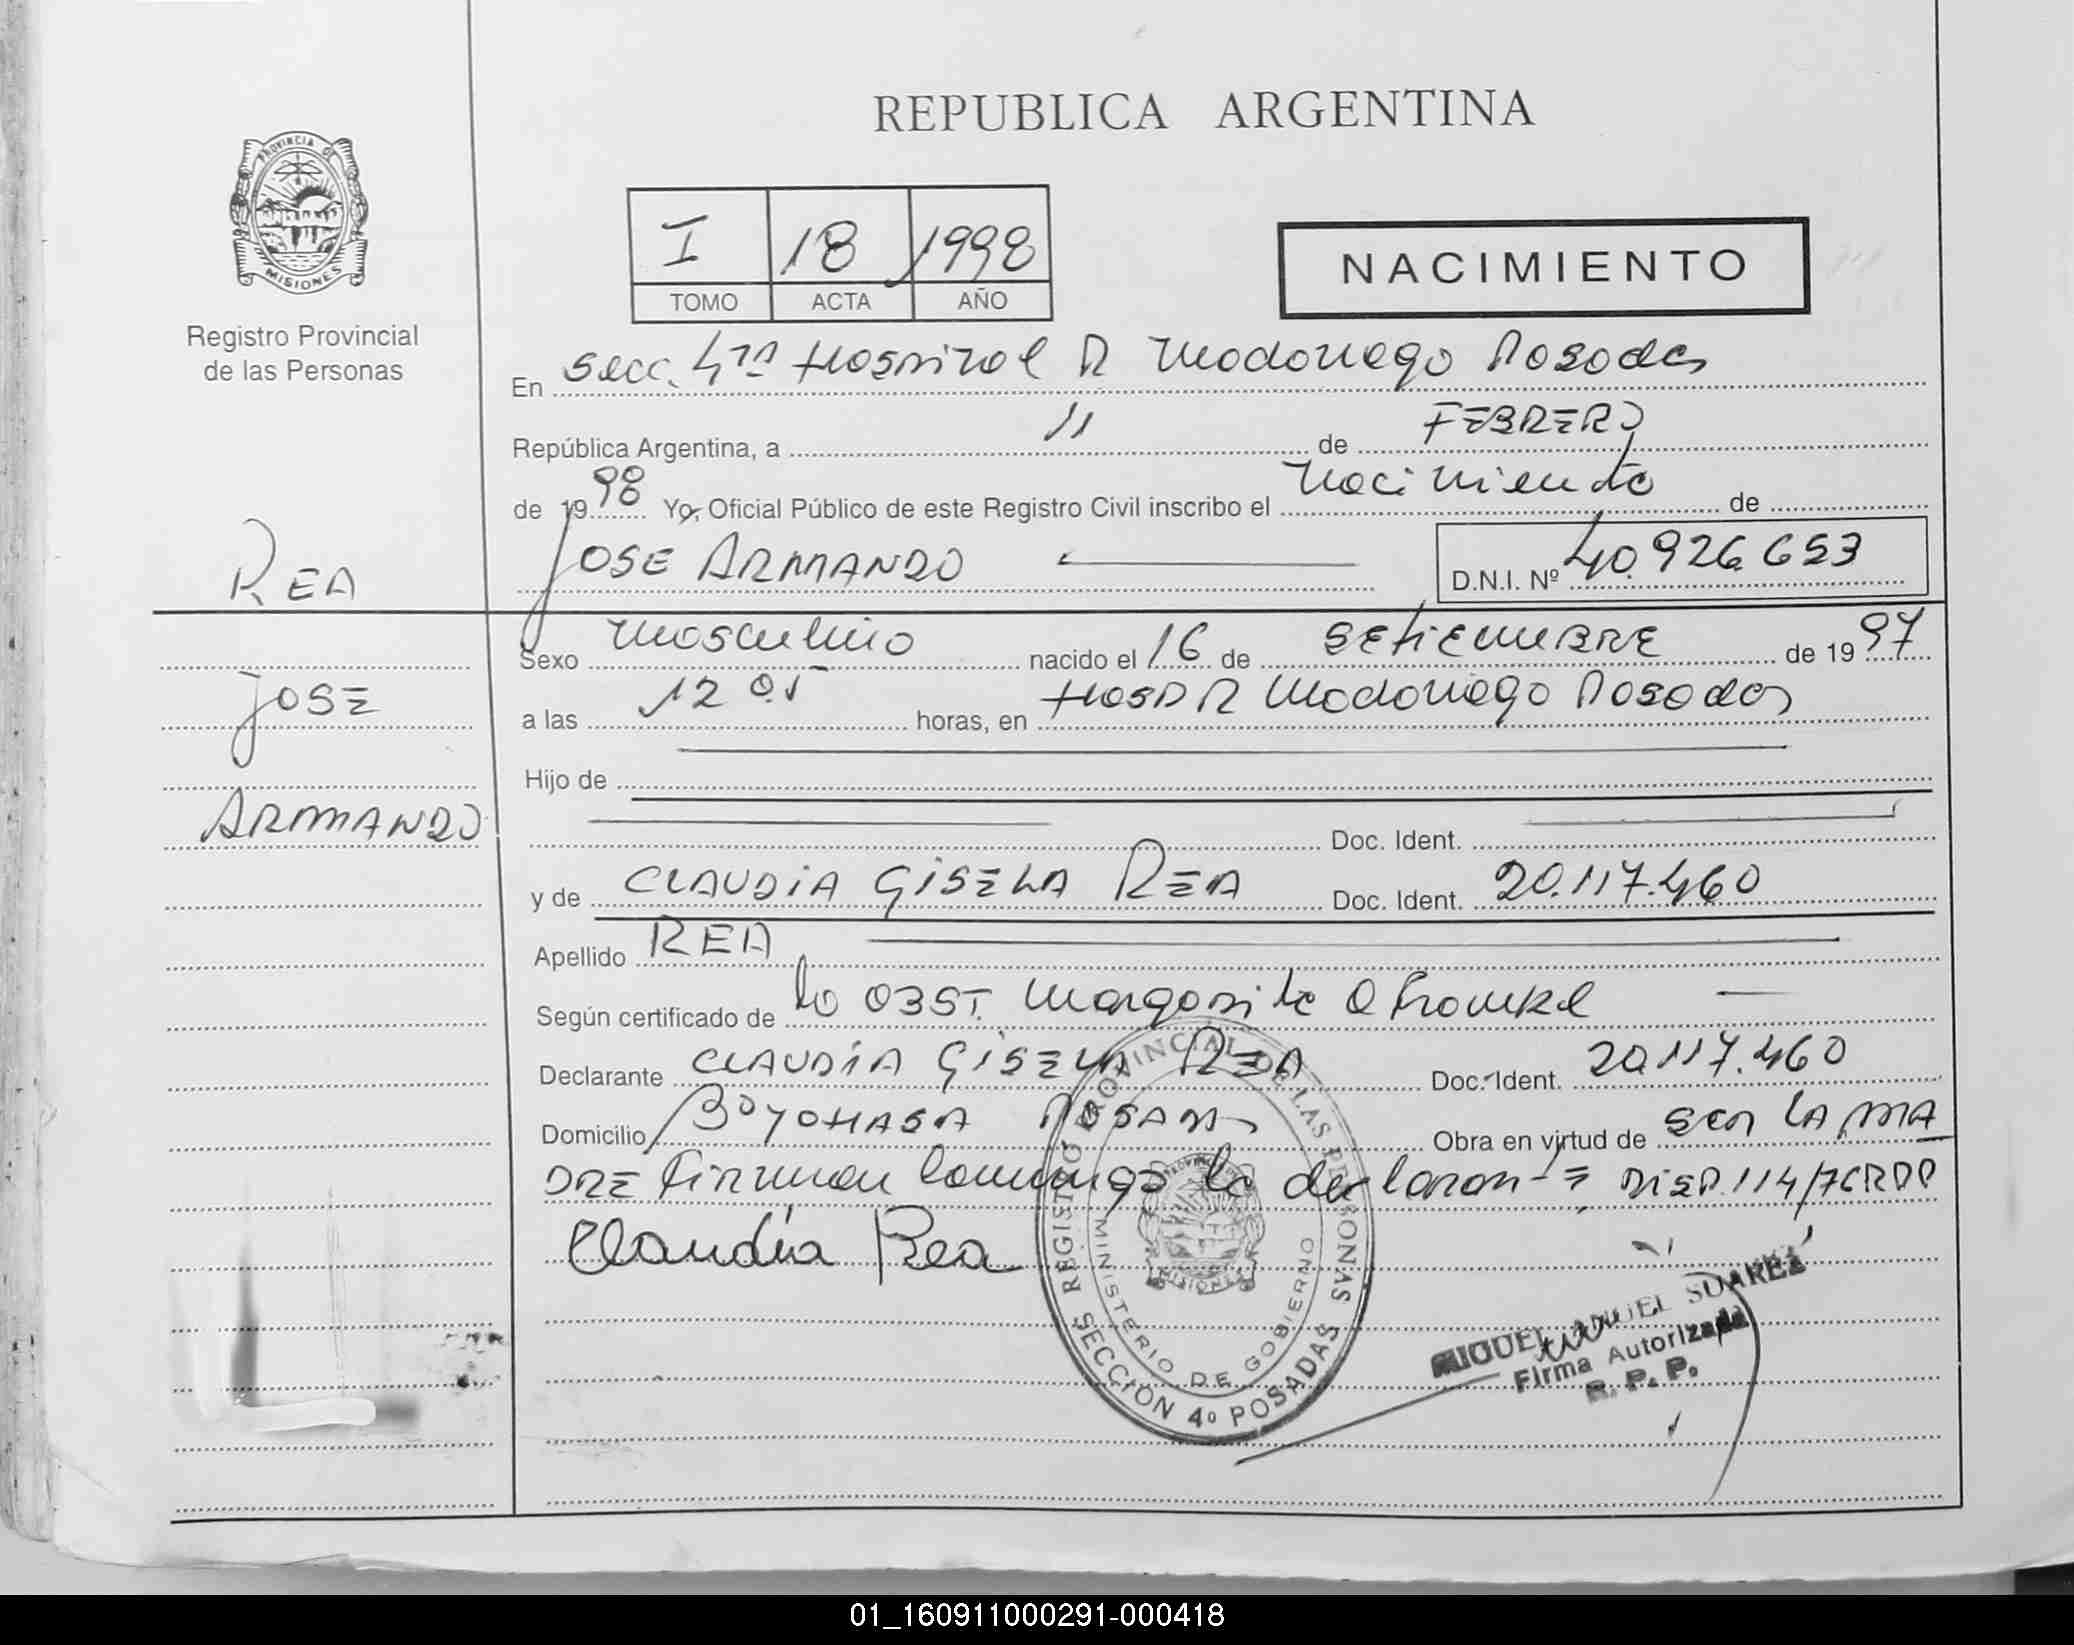 REPUBLICA ARGENTINA
PROVINCIA DE
MISIONES
I 18 1998
TOMO ACTA AÑO
NACIMIENTO
Registro Provincial
de las Personas
En Secc. 4ta Hospital R Madariaga Posadas
República Argentina, a 11 de FEBRERO
de 1998 Yo, Oficial Público de este Registro Civil inscribo el Nacimiento de
JOSE ARMANDO
D.N.I. Nº 40.926.653
REA
JOSE
ARMANDO
Sexo masculino nacido el 16 de SETIEMBRE de 1997
a las 12 05 horas, en HOSP R Madariaga Posadas
Hijo de
Doc. Ident.
y de CLAUDIA GISELA REA Doc. Ident. 20.117.460
Apellido REA
Según certificado de la OBST. Margarita
Declarante CLAUDIA GISELA REA Doc. Ident. 20.117.460
Domicilio Obra en virtud de ser LA MA
DRE Firman conmigo la declaran-te DISP. 114/76RPP
Claudia Rea
REGISTRO PROVINCIAL DE LAS PERSONAS
MINISTERIO DE GOBIERNO
MISIONES
SECCIÓN 4º POSADAS
MIGUEL ANGEL SUAREZ
Firma Autorizada
R. P. P.
01_160911000291-000418